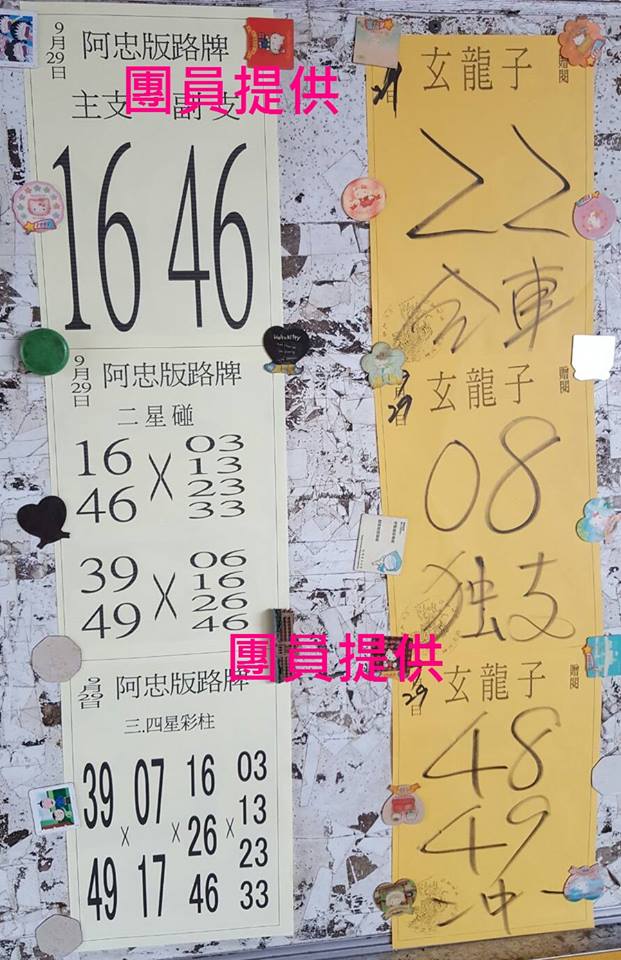 9月29日
阿忠版路牌
團員提供
主支 副支
16 46
9月29日
阿忠版路牌
二星碰
16
46
×
03
13
23
33
39
49
×
06
16
26
46
團員提供
9月29日
阿忠版路牌
三.四星彩柱
39
49
×
07
17
×
16
26
46
×
03
13
23
33
玄龍子
贈閱
22
全車
玄龍子
贈閱
29
日
08
独支
玄龍子
贈閱
29
日
48
49
二中一